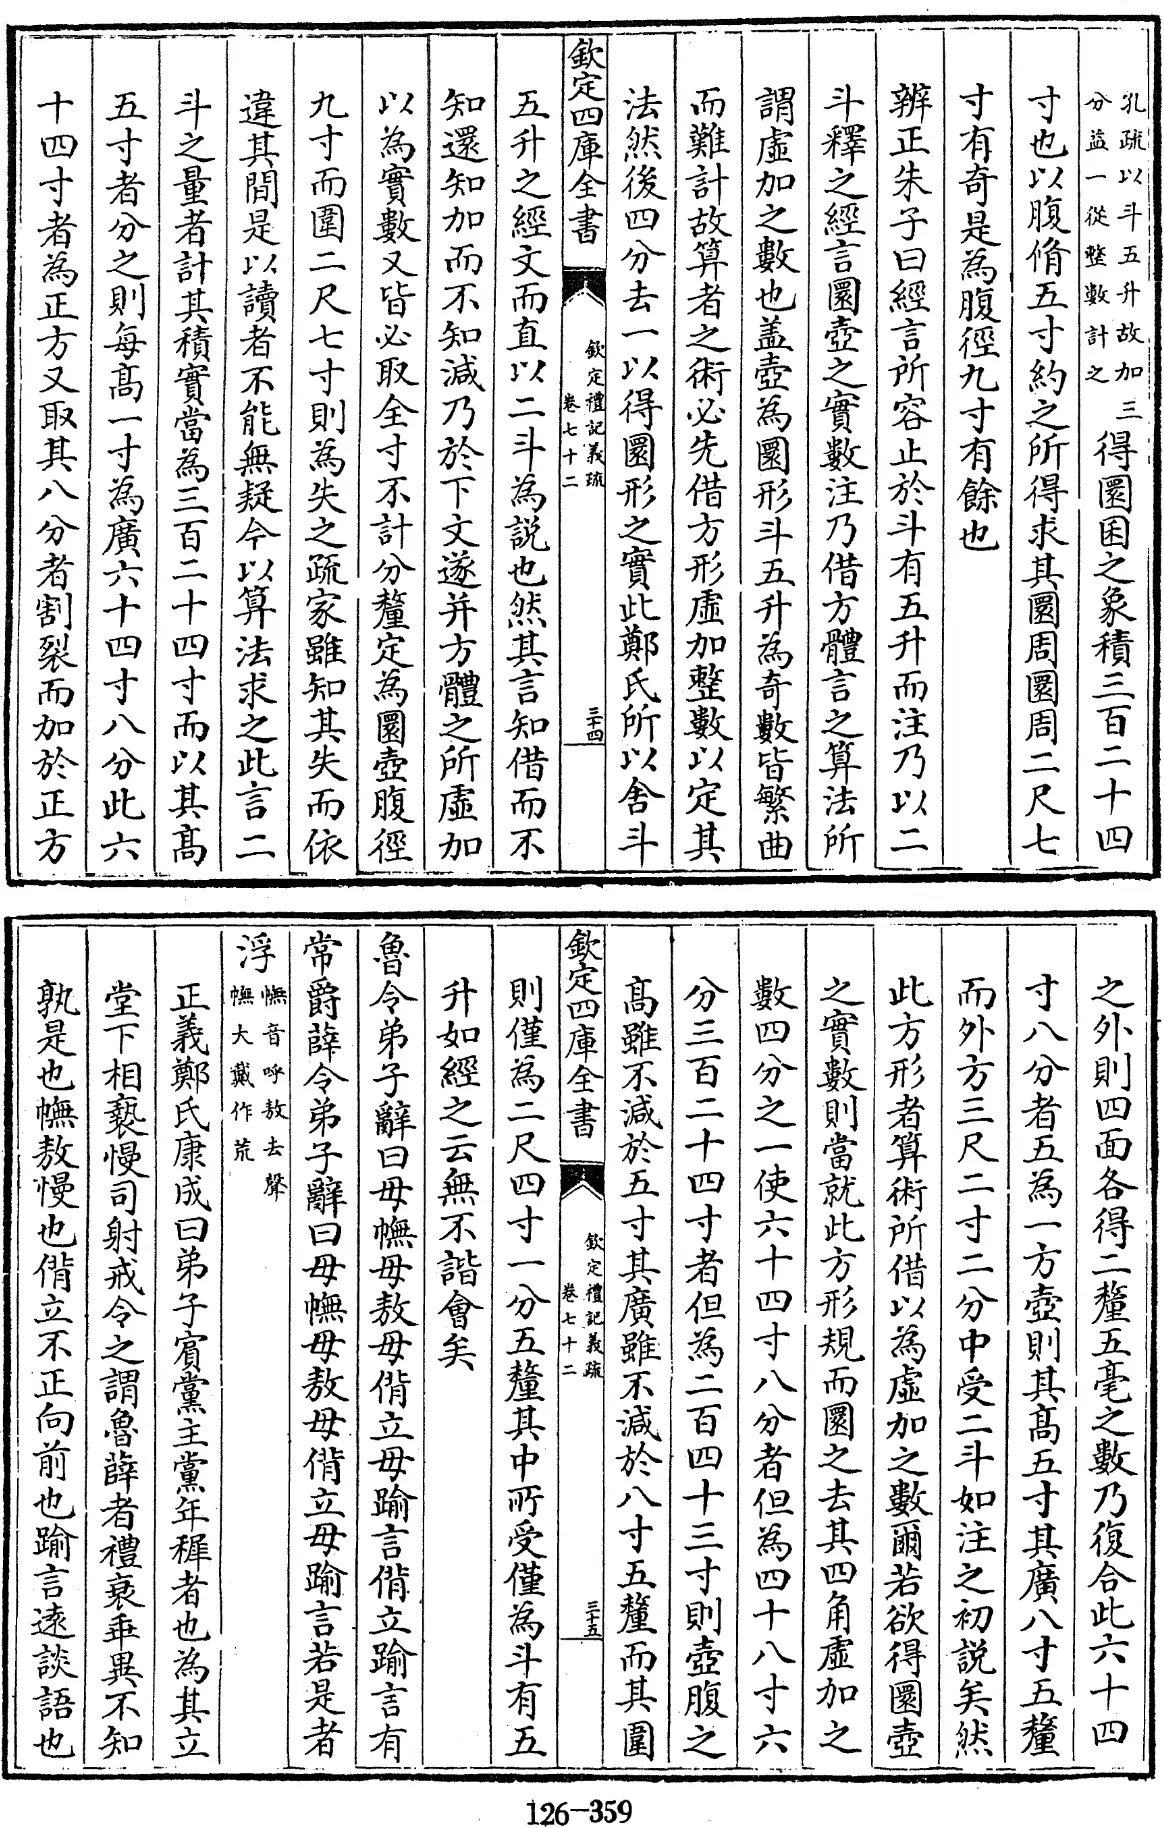 孔疏以斗五升故加三
分益一從整數計之
得圜囷之象積三百二十四
寸也以腹脩五寸約之所得求其圜周圜周二尺七
寸有奇是為腹徑九寸有餘也
辨正朱子曰經言所容止於斗有五升而注乃以二
斗釋之經言圜壺之實數注乃借方體言之算法所
謂虛加之數也盖壺為圜形斗五升為奇數皆繁曲
而難計故算者之術必先借方形虛加整數以定其
法然後四分去一以得圜形之實此鄭氏所以舍斗
欽定四庫全書
欽定禮記義疏
卷七十二
三十四
五升之經文而直以二斗為説也然其言知借而不
知還知加而不知減乃於下文遂并方體之所虛加
以為實數又皆必取全寸不計分釐定為圜壺腹徑
九寸而圍二尺七寸則為失之疏家雖知其失而依
違其間是以讀者不能無疑今以算法求之此言二
斗之量者計其積實當為三百二十四寸而以其髙
五寸者分之則每髙一寸為廣六十四寸八分此六
十四寸者為正方又取其八分者割裂而加於正方
之外則四面各得二釐五毫之數乃復合此六十四
寸八分者五為一方壺則其髙五寸其廣八寸五釐
而外方三尺二寸二分中受二斗如注之初説矣然
此方形者算術所借以為虛加之數爾若欲得圜壺
之實數則當就此方形規而圜之去其四角虛加之
數四分之一使六十四寸八分者但為四十八寸六
分三百二十四寸者但為二百四十三寸則壺腹之
髙雖不減於五寸其廣雖不減於八寸五釐而其圍
欽定四庫全書
欽定禮記義疏
卷七十二
三十五
則僅為二尺四寸一分五釐其中所受僅為斗有五
升如經之云無不諧會矣
魯令弟子辭曰毋幠毋敖毋偝立毋踰言偝立踰言有
常爵薛令弟子辭曰毋幠毋敖毋偝立毋踰言若是者
浮
幠音呼敖去聲
幠大戴作荒
正義鄭氏康成曰弟子賓黨主黨年穉者也為其立
堂下相褻慢司射戒令之謂魯薛者禮衰乖異不知
孰是也幠敖慢也偝立不正向前也踰言逺談語也
126-359